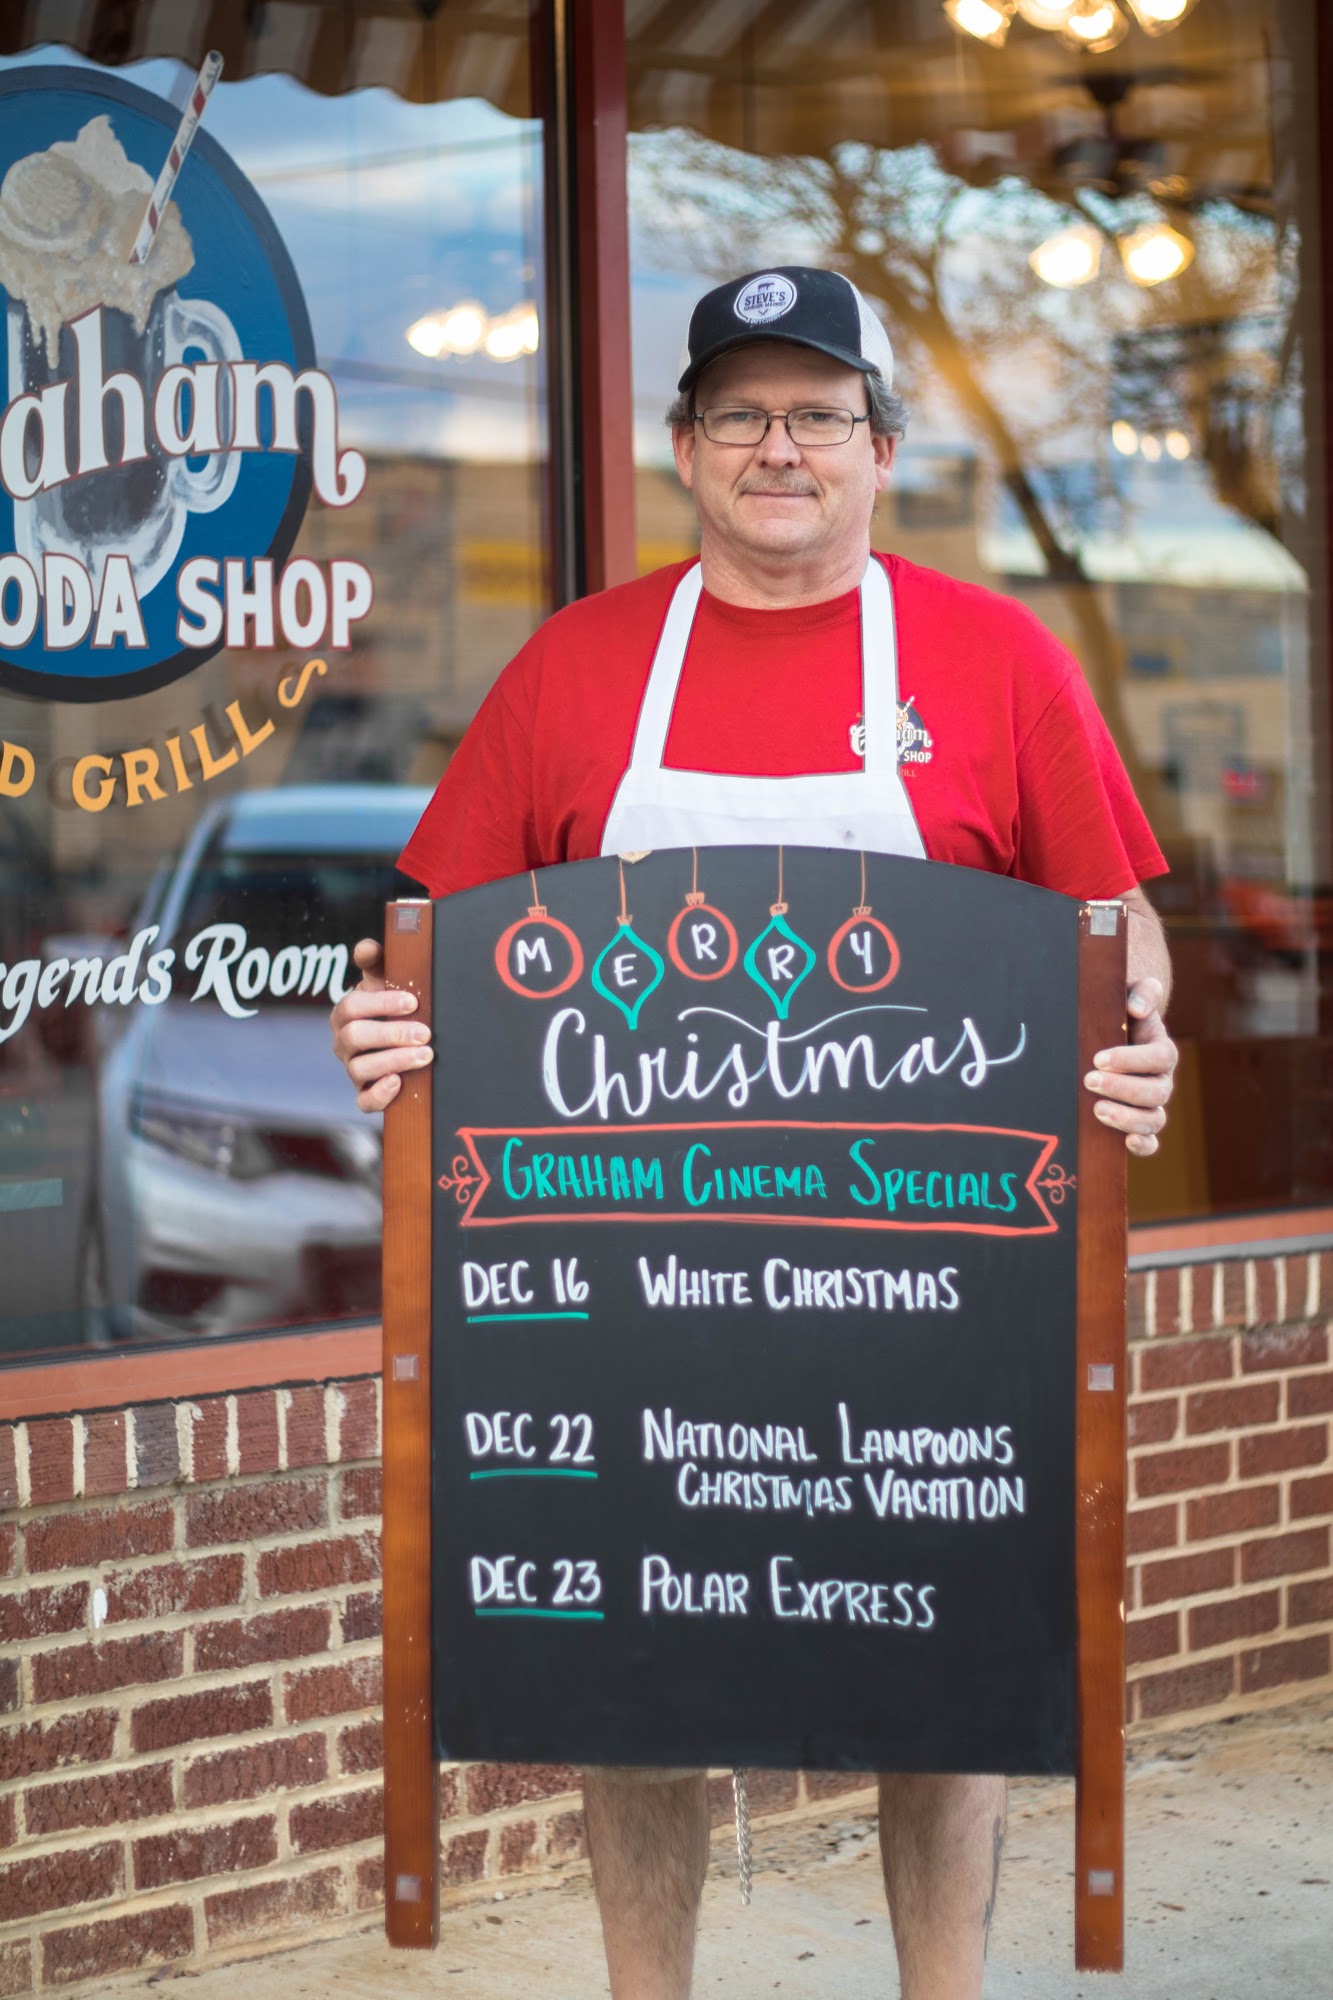 STEVE'S
aham
ODA SHOP
D GRILL
rgends Room
SHOP
M E R R Y
Christmas
GRAHAM CINEMA SPECIALS
DEC 16 WHITE CHRISTMAS
DEC 22 NATIONAL LAMPOONS
CHRISTMAS VACATION
DEC 23 POLAR EXPRESS